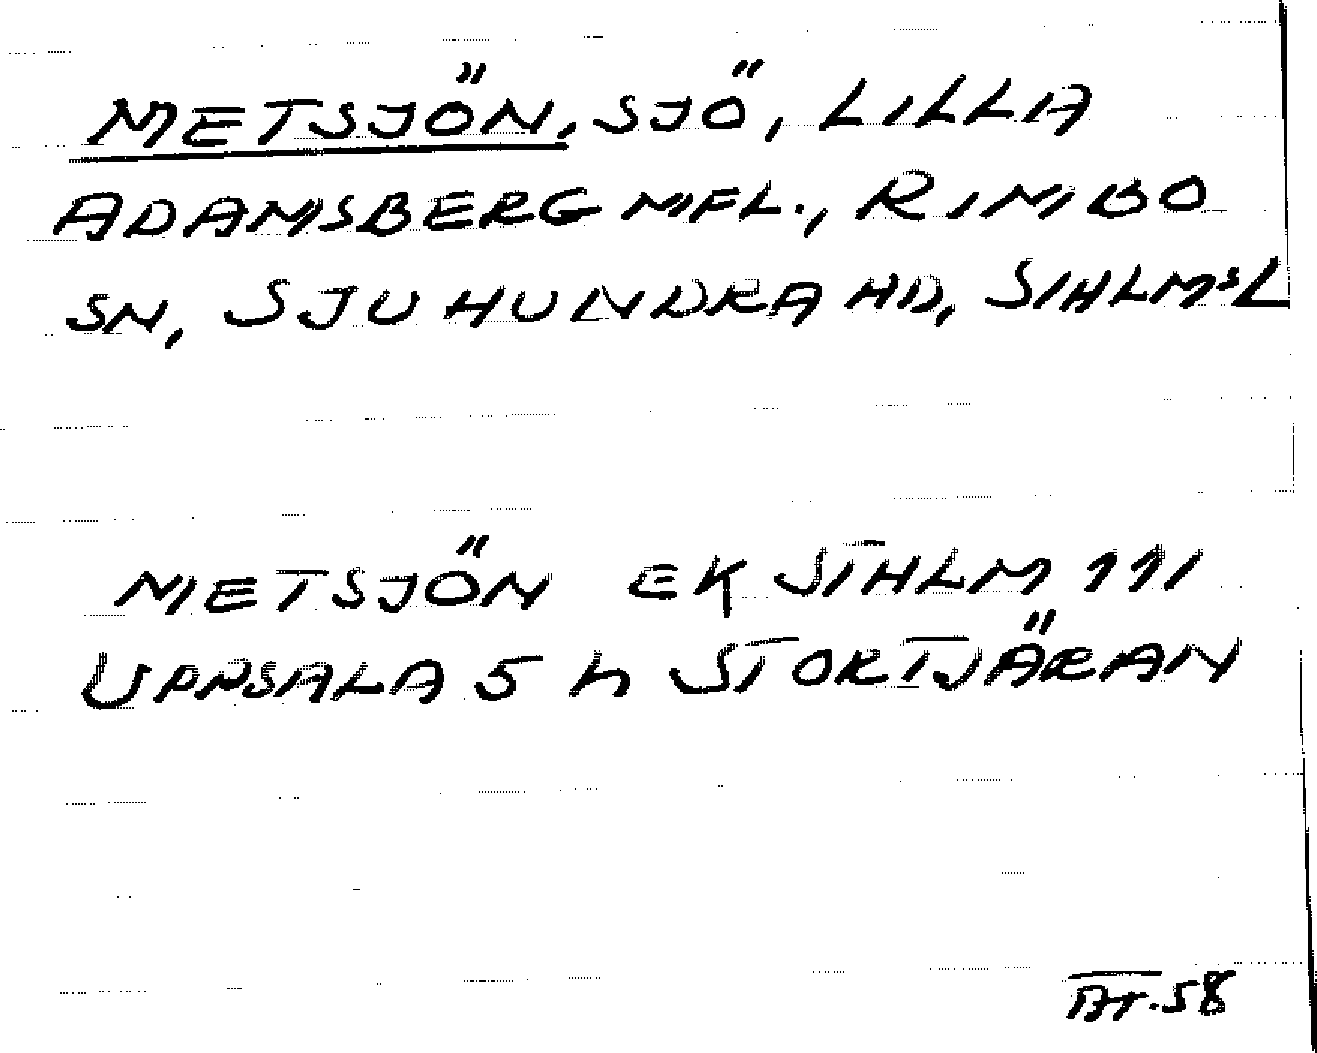 METSJÖN, SJÖ, LILLA
ADAMSBERG MFL., RIMBO
SN, SJUHUNDRA HD, STHLMS L
METSJÖN EK STHLM 111
UPPSALA 5 h STORTJÄRAN
AT. 58